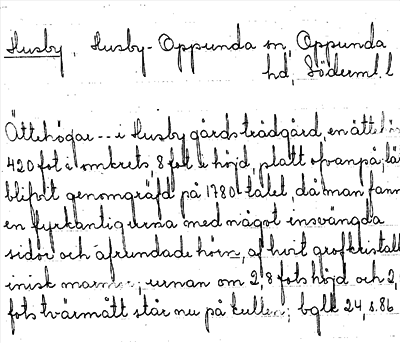 Husby, Husby-Oppunda sn, Oppunda
hd, Söderml. l
Ättehögar -- i Husby gårds trädgård, en ätte
420 fot i omkrets, 8 fot i höjd, platt ofvanpå, lä
blifvit genomgräfd på 1780-talet, då man fann
en fyrkantig urna med något insvängda
sidor och afrundade hörn, af hvit grofkristall
inisk marmor; urnan om 2,8 fots höjd och 2,
fots tvärmått står nu på kullen; bglk 24, s. 86